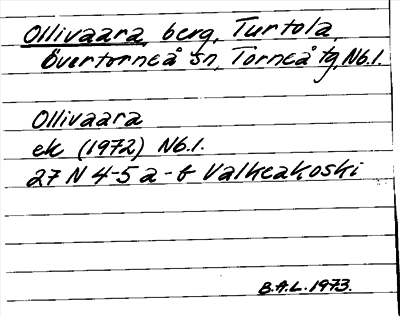 Ollivaara, berg, Turtola,
Övertorneå sn, Torneå tg, Nb.l.
Ollivaara
ek (1972) Nb.l.
27 N 4-5 a-b Valkeakoski
B.A.L. 1973.